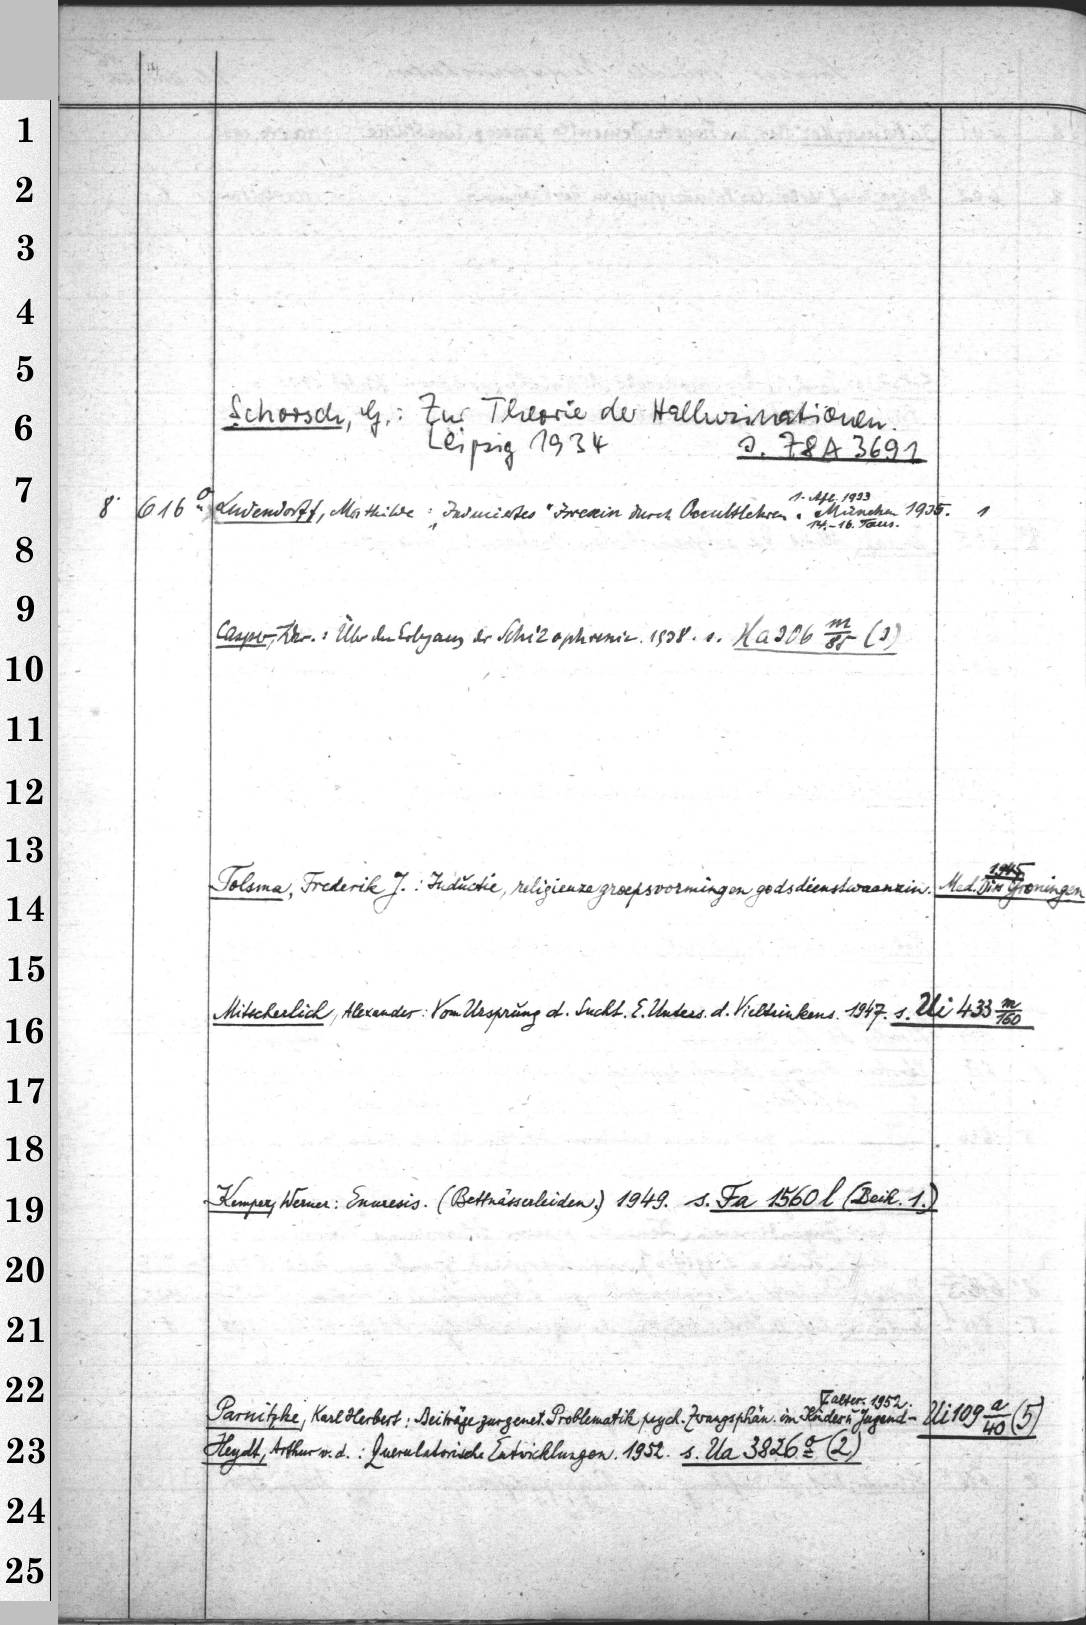 1
2
3
4
5
6
7
8
9
10
11
12
13
14
15
16
17
18
19
20
21
22
23
24
25
Schorsch, G.: Zur Theorie der Halluzinationen.
Leipzig 1934 s. 78A 3691
1. Afl. 1933
8° 616 Ludendorff, Mathilde: Induziertes Irresein durch Occultlehren. München 1935. 1
14.-16. Taus.
Über den Erbgang der Schizophrenie. 1938. s. Ha 206 m/85 (3)
1945
Tolsma, Frederik J.: Inductie, religieuze groepsvorming en godsdienstwaanzin. Med. Diss Groningen
Mitscherlich, Alexander: Vom Ursprung d. Sucht. E. Unters. d. Vieltrinkens. 1947. s. Ui 433 m/160
Kemper, Werner: Enuresis. (Bettnässerleiden.) 1949. s. Fa 1560 l (Beih. 1.)
alter. 1952.
Parnitzke, Karl Herbert: Beiträge zur genet. Problematik psych. Zwangsphän. im Kinder u Jugend- Ui 109 a/40 (5)
Heydt, Arthur v. d.: Querulatorische Entwicklungen. 1952. s. Ua 3826 a (2)